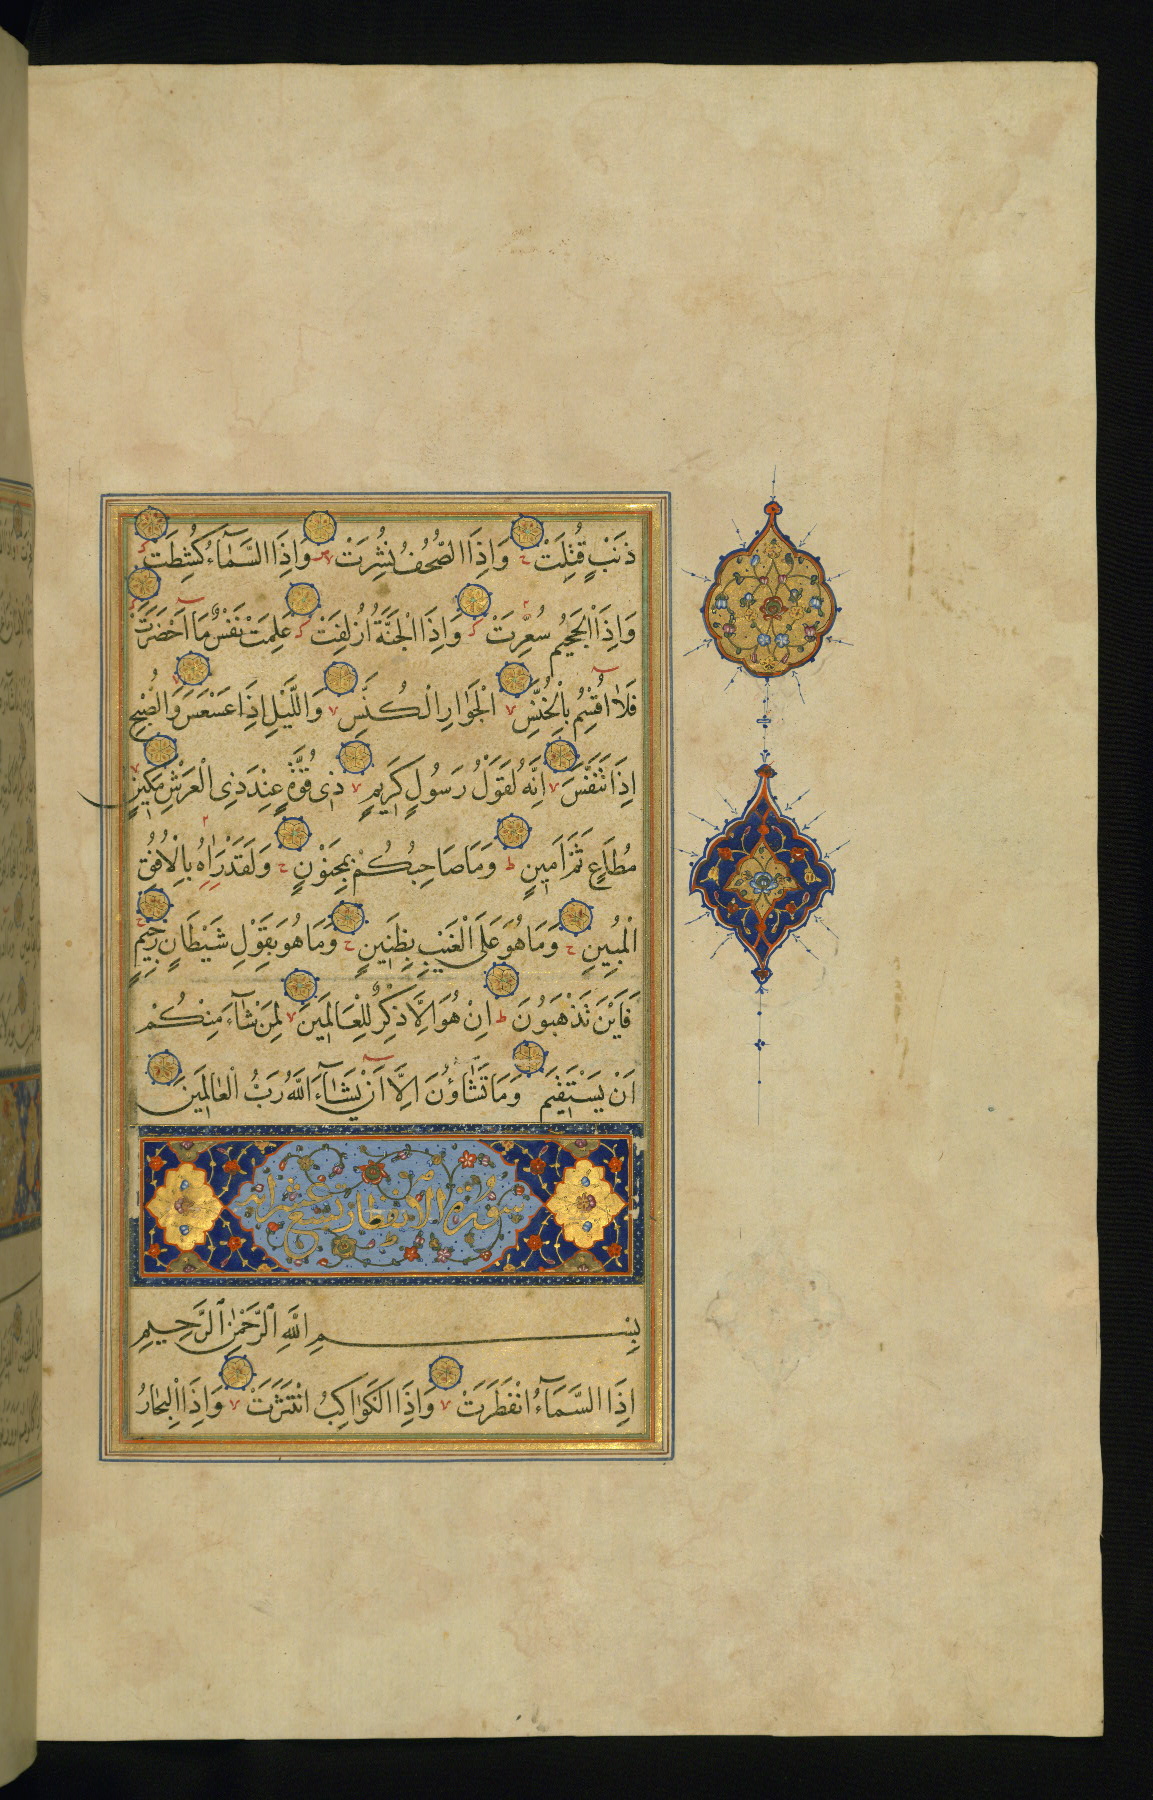 ذَنْبٍ قُتِلَتْ ح وَاِذَا الصُّحُفُ نُشِرَتْ وَاِذَا السَّمَآءُ كُشِطَتْ
وَاِذَا الْجَحِيمُ سُعِّرَتْ وَاِذَا الْجَنَّةُ اُزْلِفَتْ عَلِمَتْ نَفْسٌ مَآ اَحْضَرَتْ
فَلَآ اُقْسِمُ بِالْخُنَّسِ الْجَوَارِ الْكُنَّسِ وَالَّيْلِ اِذَا عَسْعَسَ وَالصُّبْحِ
اِذَا تَنَفَّسَ اِنَّهُ لَقَوْلُ رَسُولٍ كَرِيمٍ ذِى قُوَّةٍ عِنْدَ ذِى الْعَرْشِ مَكِينٍ
مُطَاعٍ ثَمَّ اَمِينٍ ط وَمَا صَاحِبُكُمْ بِمَجْنُونٍ ح وَلَقَدْ رَاٰهُ بِالْاُفُقِ
الْمُبِينِ ح وَمَا هُوَ عَلَى الْغَيْبِ بِظَنِينٍ ح وَمَا هُوَ بِقَوْلِ شَيْطَانٍ رَجِيمٍ
فَاَيْنَ تَذْهَبُونَ ط اِنْ هُوَ اِلَّا ذِكْرٌ لِلْعَالَمِينَ لِمَنْ شَآءَ مِنْكُمْ
اَنْ يَسْتَقِيمَ وَمَا تَشَاؤُنَ اِلَّآ اَنْ يَشَآءَ اللّٰهُ رَبُّ الْعَالَمِينَ
سورة الانفطار تسع عشر اية
بِسْمِ اللّٰهِ الرَّحْمٰنِ الرَّحِيمِ
اِذَا السَّمَآءُ انْفَطَرَتْ وَاِذَا الْكَوَاكِبُ انْتَثَرَتْ وَاِذَا الْبِحَارُ